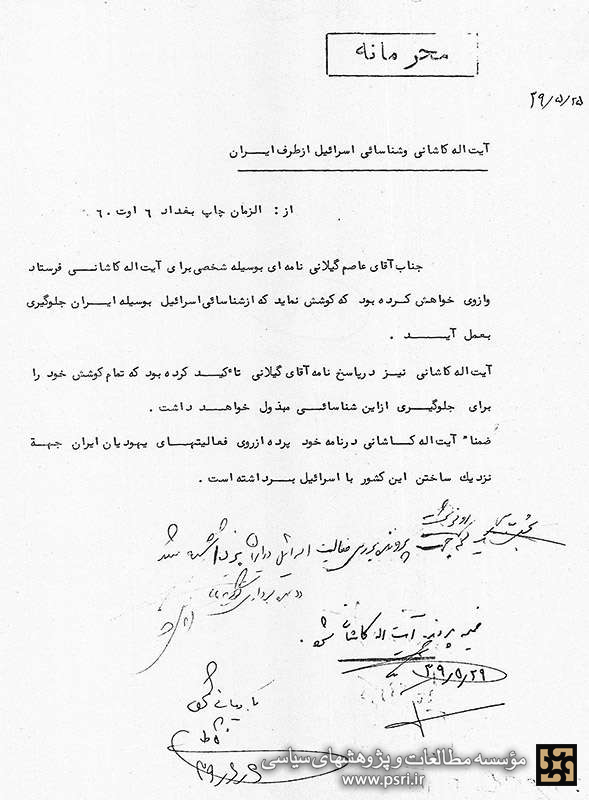 محرمانه
۳۹/۵/۲۵
آیت اله کاشانی وشناسائی اسرائیل ازطرف ایران
از: الزمان چاپ بغداد ۶ اوت ۶۰
جناب آقای عاصم گیلانی نامه ای بوسیله شخصی برای آیت اله کاشانی فرستاد
وازوی خواهش کرده بود که کوشش نماید که ازشناسائی اسرائیل بوسیله ایران جلوگیری
بعمل آید .
آیت اله کاشانی نیز درپاسخ نامه آقای گیلانی تاٴکید کرده بود که تمام کوشش خود را
برای جلوگیری ازاین شناسائی مبذول خواهد داشت .
ضمناً آیت اله کاشانی درنامه خود پرده ازروی فعالیتهای یهودیان ایران جهة
نزدیك ساختن این کشور با اسرائیل برداشته است .
پرونده فعالیت اسرائیل در ایران
ضمیمه پرونده آیت اله کاشانی شود .
۳۹/۵/۲۹
بایگانی شود
مؤسسه مطالعات و پژوهشهای سیاسی
www.psri.ir